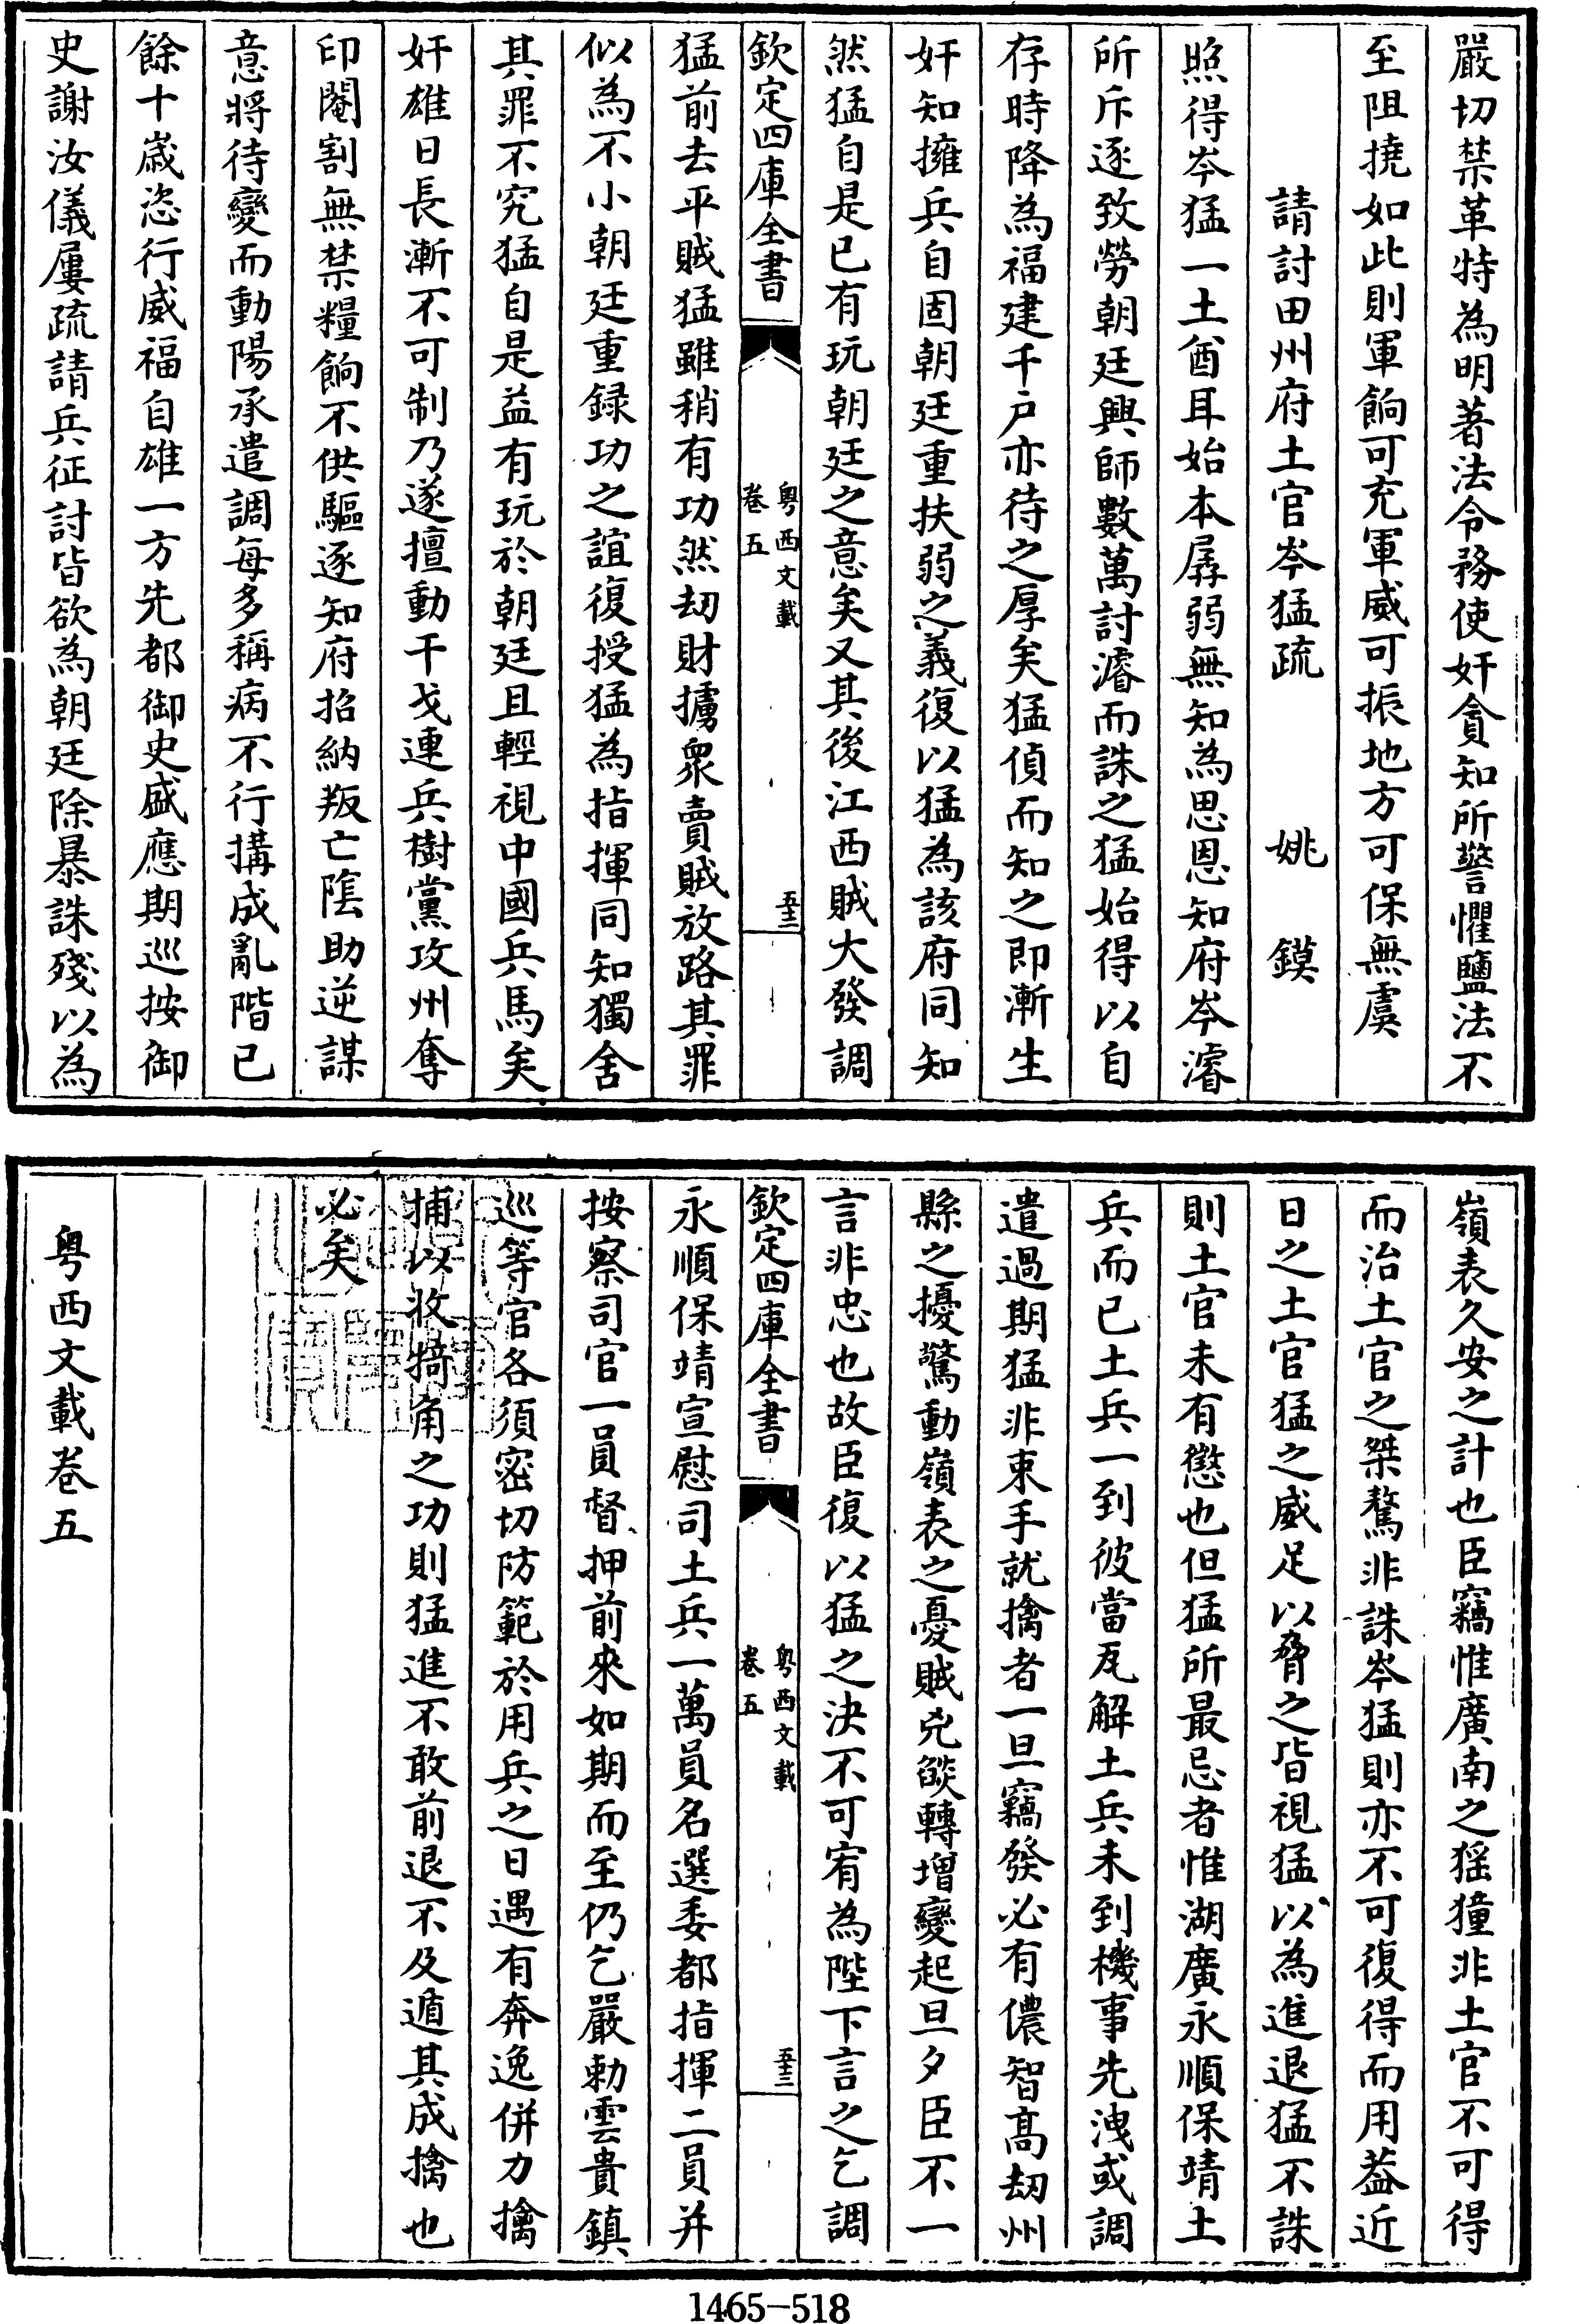 嚴切禁革特為明著法令務使奸貪知所警懼鹽法不
至阻撓如此則軍餉可充軍威可振地方可保無虞
請討田州府土官岑猛疏 姚鏌
照得岑猛一土酋耳始本孱弱無知為思恩知府岑濬
所斥逐致勞朝廷興師數萬討濬而誅之猛始得以自
存時降為福建千戶亦待之厚矣猛偵而知之即漸生
奸知擁兵自固朝廷重扶弱之義復以猛為該府同知
然猛自是已有玩朝廷之意矣又其後江西賊大發調
欽定四庫全書 粵西文載 卷五 五十二
猛前去平賊猛雖稍有功然刼財擄衆賣賊放路其罪
似為不小朝廷重録功之誼復授猛為指揮同知獨舍
其罪不究猛自是益有玩於朝廷且輕視中國兵馬矣
奸雄日長漸不可制乃遂擅動干戈連兵樹黨攻州奪
印閹割無禁糧餉不供驅逐知府招納叛亡隂助逆謀
意將待變而動陽承遣調每多稱病不行搆成亂階已
餘十歲恣行威福自雄一方先都御史盛應期巡按御
史謝汝儀屢疏請兵征討皆欲為朝廷除暴誅殘以為
嶺表久安之計也臣竊惟廣南之猺獞非土官不可得
而治土官之桀驁非誅岑猛則亦不可復得而用葢近
日之土官猛之威足以脅之皆視猛以為進退猛不誅
則土官未有懲也但猛所最忌者惟湖廣永順保靖土
兵而已土兵一到彼當瓦解土兵未到機事先洩或調
遣過期猛非束手就擒者一旦竊發必有儂智髙刼州
縣之擾驚動嶺表之憂賊兇燄轉增變起旦夕臣不一
言非忠也故臣復以猛之決不可宥為陛下言之乞調
欽定四庫全書 粵西文載 卷五 五十三
永順保靖宣慰司土兵一萬員名選委都指揮二員并
按察司官一員督押前來如期而至仍乞嚴勅雲貴鎮
巡等官各須密切防範於用兵之日遇有奔逸併力擒
捕以收犄角之功則猛進不敢前退不及遁其成擒也
必矣
粵西文載卷五
1465-518